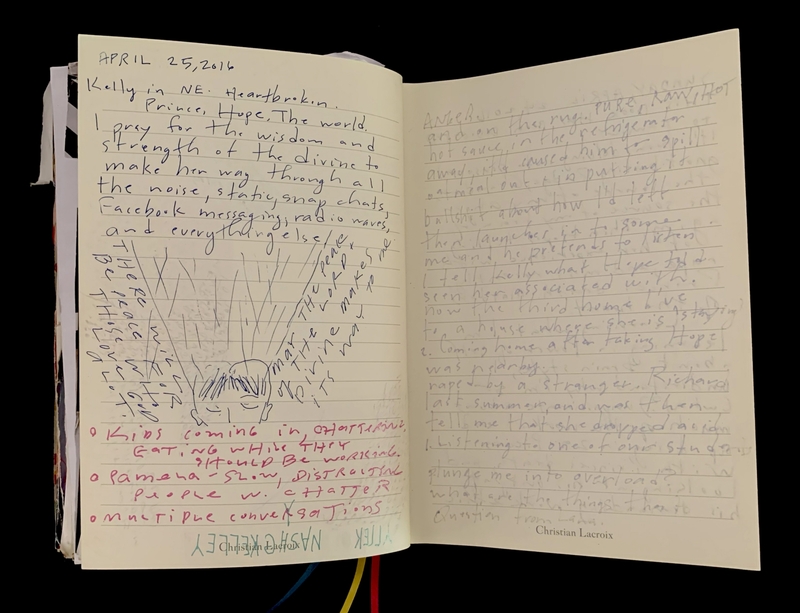 APRIL 25, 2016
Kelly in NE. Heartbroken.
Prince, Hope, The world.
I pray for the wisdom and
strength of the divine to
make her way through all
the noise, static, snap chats,
Facebook messaging, radio waves,
and everything else/
THERE WILL
BE PEACE FOR
THOSE WHO
LOVE GOD
A LOT.
MAY THE peace
OF THE WORD
Divine makes
its way TO me
• KIDS COMING IN, CHATTERING,
EATING WHILE THEY
SHOULD BE WORKING.
• Pamela - SLOW, DISTRACTING
PEOPLE W. CHATTER
• MULTIPLE CONVERSATIONS
Christian Lacroix
and on the rug. PURE, RAW, HOT
hot sauce in the refrigerator
away it caused him to spill
oatmeal out in putting it
bullshit about how I'd left
then launches into some
me and he pretends to listen
I tell Kelly what Hope had
seen her associated with.
now the third home I've
to a house where she is staying)
2. Coming home after taking Hope
was nearby.
raped by a stranger. Richard
last summer, and was then
tell me that she dropped acid in
1. Listening to one of our students
plunge me into overload:
what are the things these
Christian Lacroix